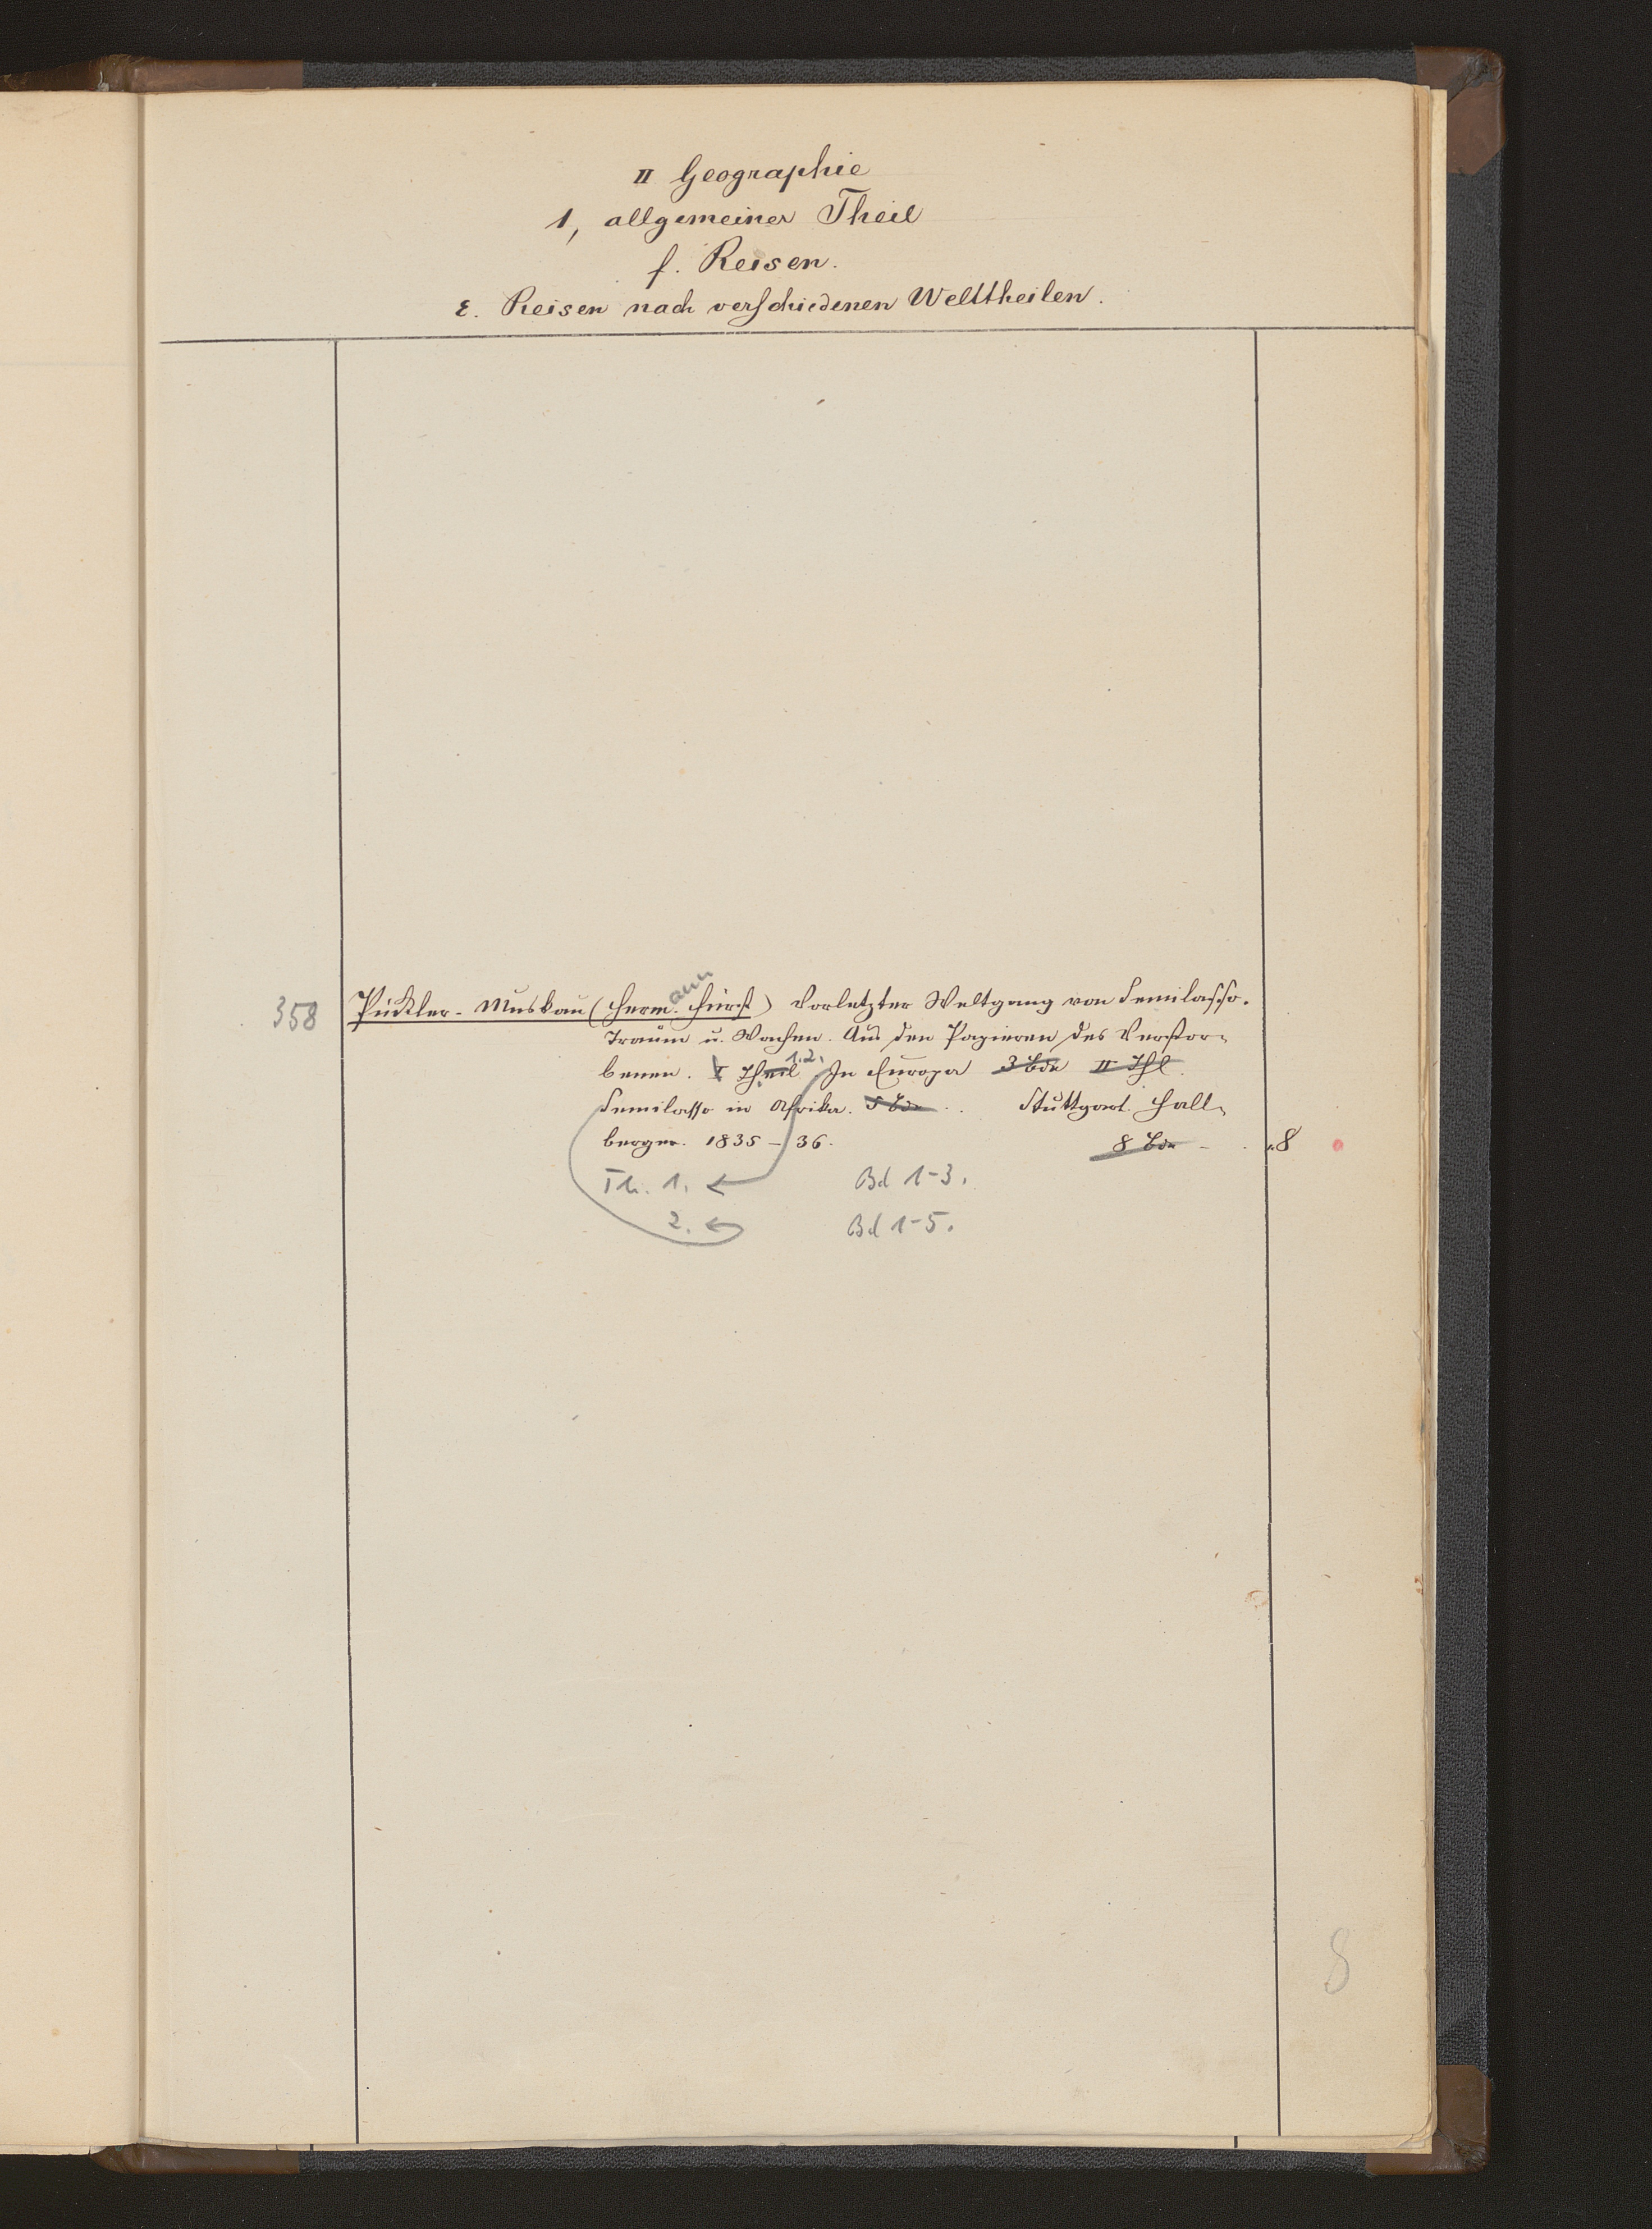 II Geographie
1, allgemeiner Theil
f. Reisen.
ε. Reisen nach verschiedenen Welttheilen.
358 Pückler-Muskau (Herm.ann Fürst) Vorletzter Weltgang von Semilasso.
Traum u. Wachen. Aus den Papieren des Verstor-
benen. I Theil 1.2. In Europa 3 Bde II Thl.
Semilasso in Afrika. 5 Bde. Stuttgart. Hall-
berger. 1835-36. 8 Bde 8
Th. 1. ← Bd 1-3.
2. ← Bd 1-5.
8